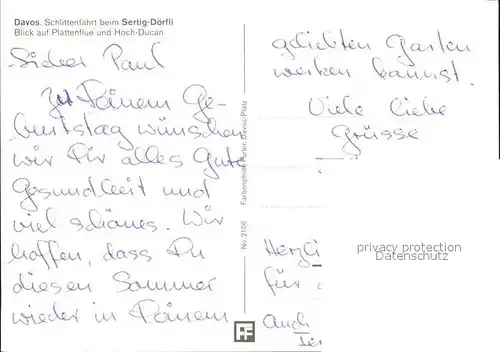 Davos. Schlittenfahrt beim Sertig-Dörfli
Blick auf Plattenflue und Hoch-Ducan
Lieber Paul
Zu Deinem Ge-
burtstag wünschen
wir Dir alles Gute
Gesundheit und
viel schönes. Wir
hoffen, dass Du
diesen Sommer
wieder in Deinem
No. 2106
Farbenphoto Furter, Davos-Platz
geliebten Garten
werken kannst.
Viele liebe
Grüsse
Herzli
für
Auch
privacy protection
Datenschutz